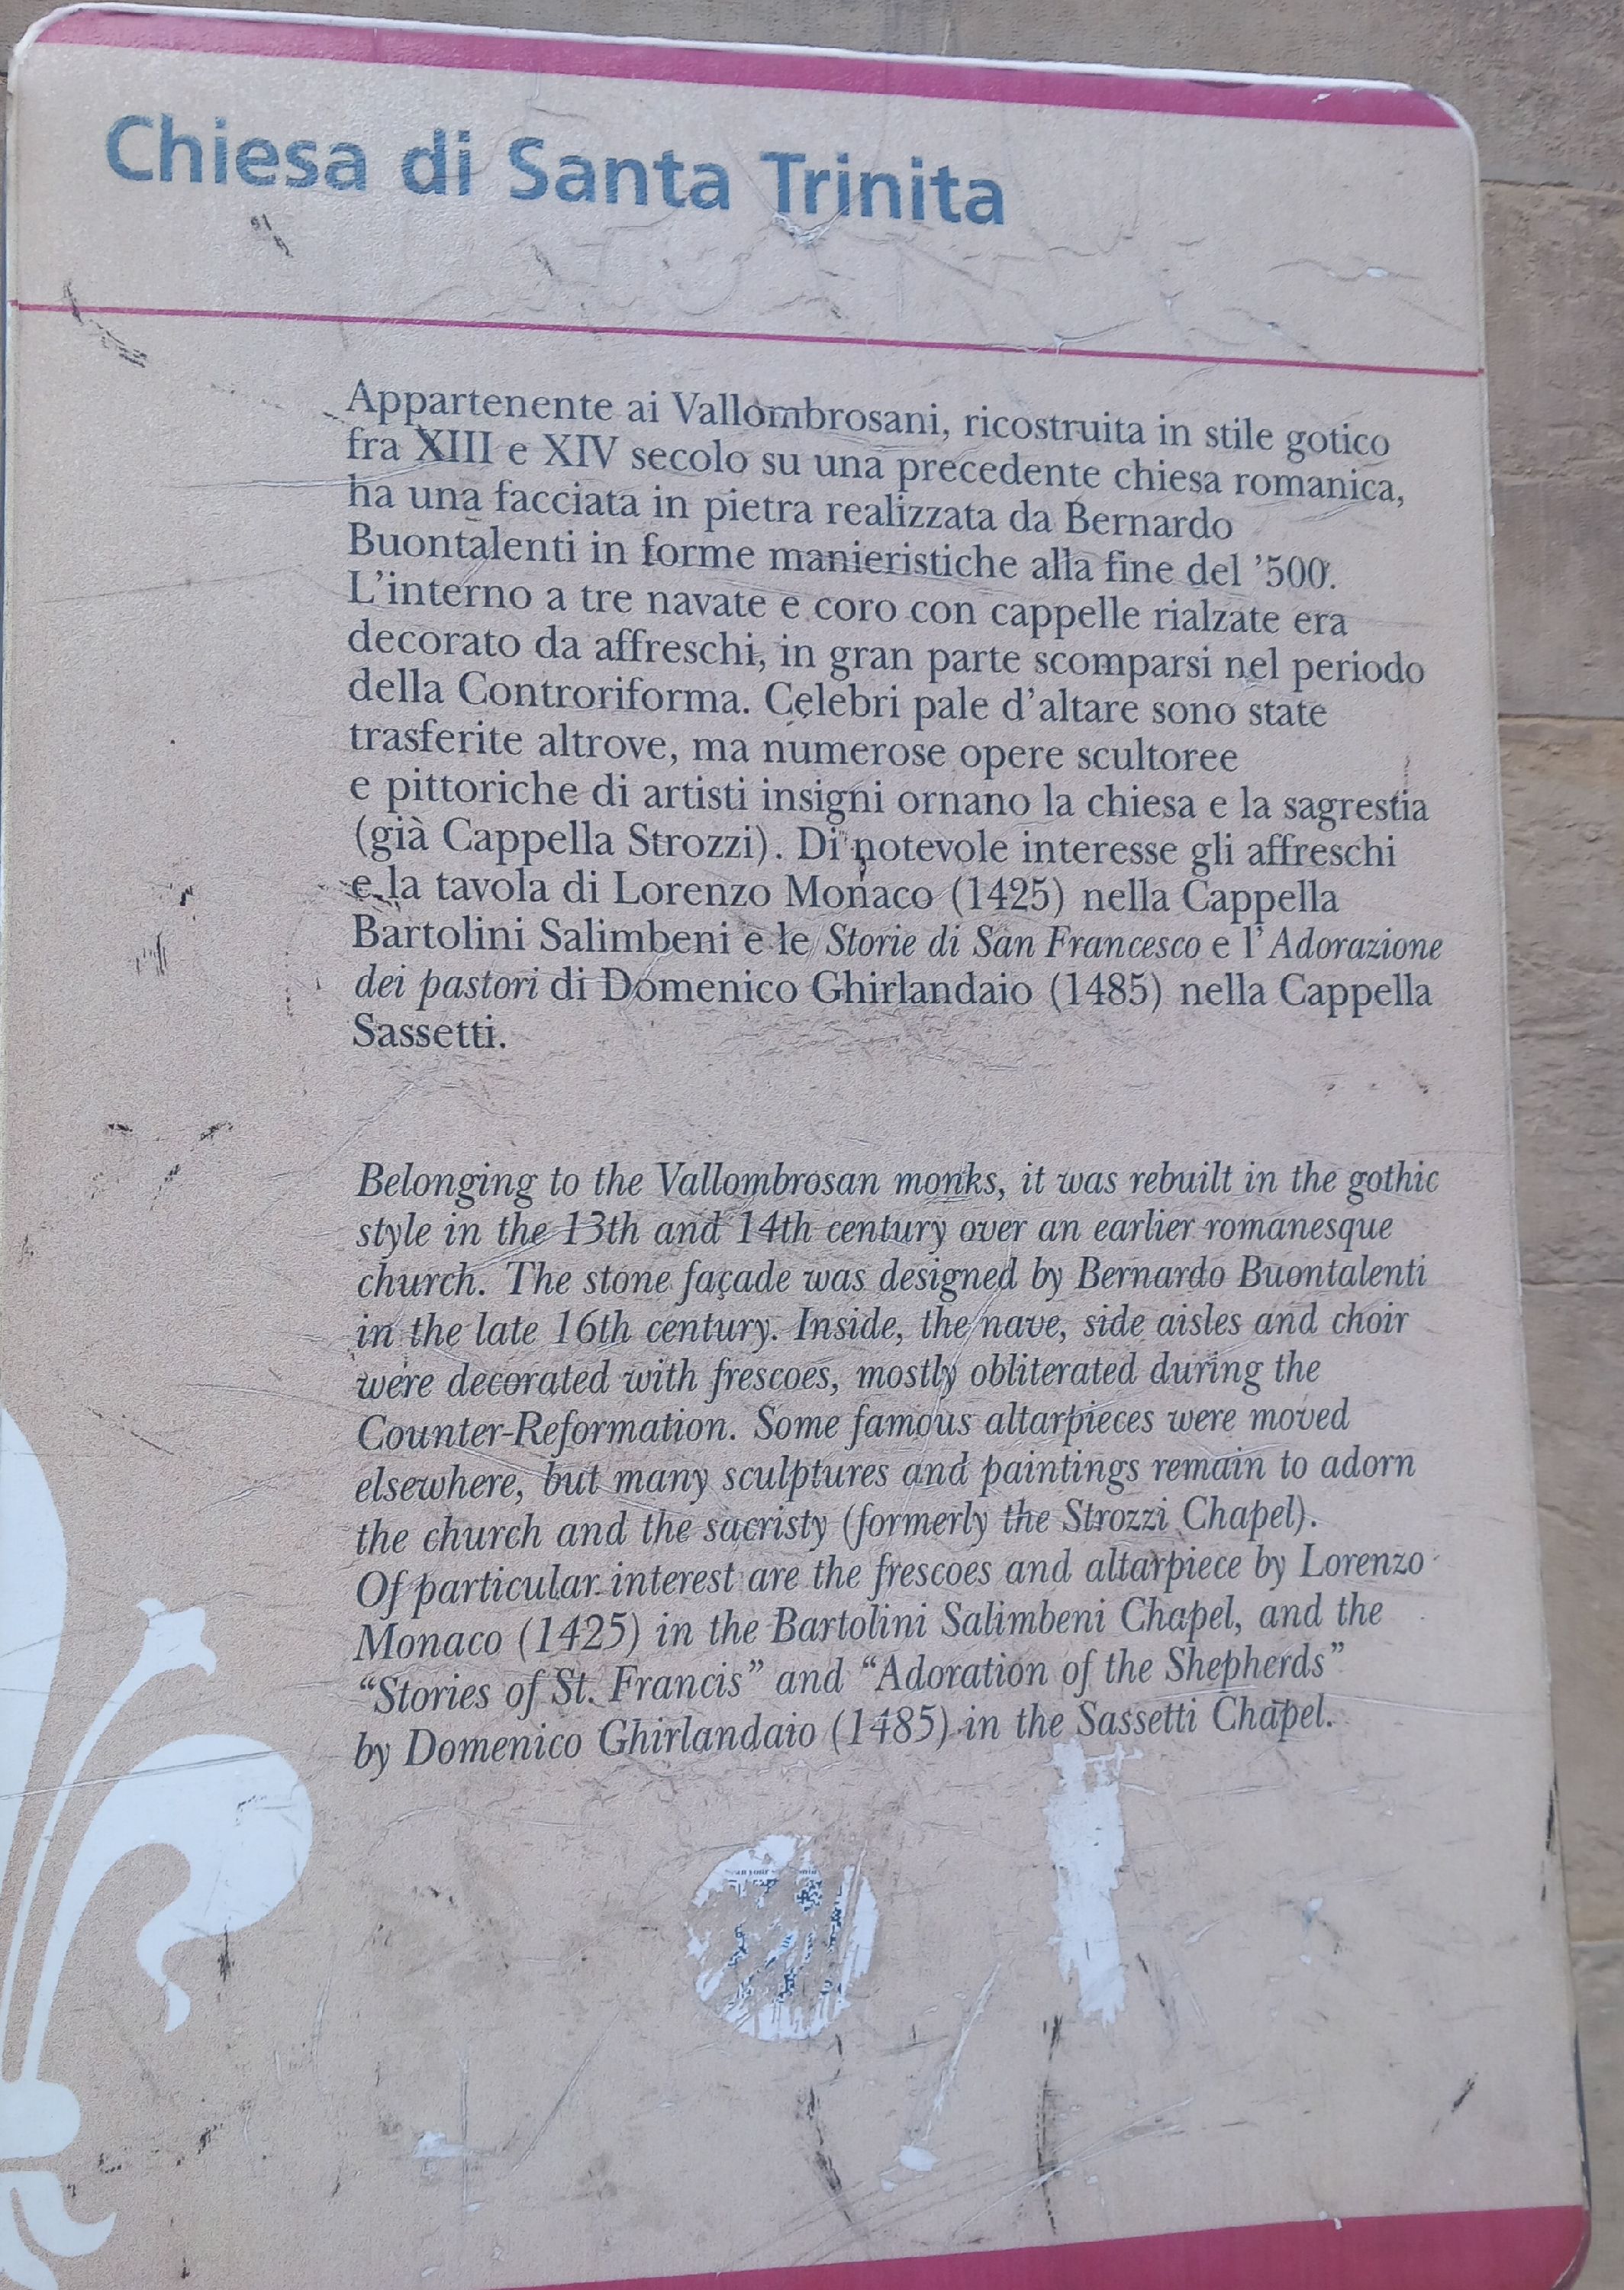 Chiesa di Santa Trinita
Appartenente ai Vallombrosani, ricostruita in stile gotico
fra XIII e XIV secolo su una precedente chiesa romanica,
ha una facciata in pietra realizzata da Bernardo
Buontalenti in forme manieristiche alla fine del '500.
L'interno a tre navate e coro con cappelle rialzate era
decorato da affreschi, in gran parte scomparsi nel periodo
della Controriforma. Celebri pale d'altare sono state
trasferite altrove, ma numerose opere scultoree
e pittoriche di artisti insigni ornano la chiesa e la sagrestia
(già Cappella Strozzi). Di notevole interesse gli affreschi
e la tavola di Lorenzo Monaco (1425) nella Cappella
Bartolini Salimbeni e le Storie di San Francesco e l'Adorazione
dei pastori di Domenico Ghirlandaio (1485) nella Cappella
Sassetti.
Belonging to the Vallombrosan monks, it was rebuilt in the gothic
style in the 13th and 14th century over an earlier romanesque
church. The stone façade was designed by Bernardo Buontalenti
in the late 16th century. Inside, the nave, side aisles and choir
were decorated with frescoes, mostly obliterated during the
Counter-Reformation. Some famous altarpieces were moved
elsewhere, but many sculptures and paintings remain to adorn
the church and the sacristy (formerly the Strozzi Chapel).
Of particular interest are the frescoes and altarpiece by Lorenzo
Monaco (1425) in the Bartolini Salimbeni Chapel, and the
"Stories of St. Francis" and "Adoration of the Shepherds"
by Domenico Ghirlandaio (1485) in the Sassetti Chapel.